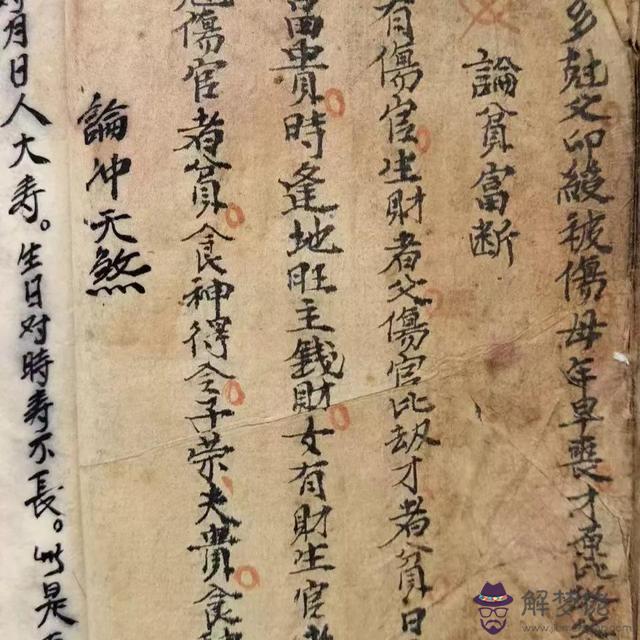 尅父印綬被傷母年早喪才
論貧富断
有傷官生財者父傷官比劫才者貧日
富貴時逢地旺主錢財女有財生官者
傷官者貧食神得令子荣夫貴食
論冲天煞
月日人大寿。生日对時寿不長。此是
解梦佬